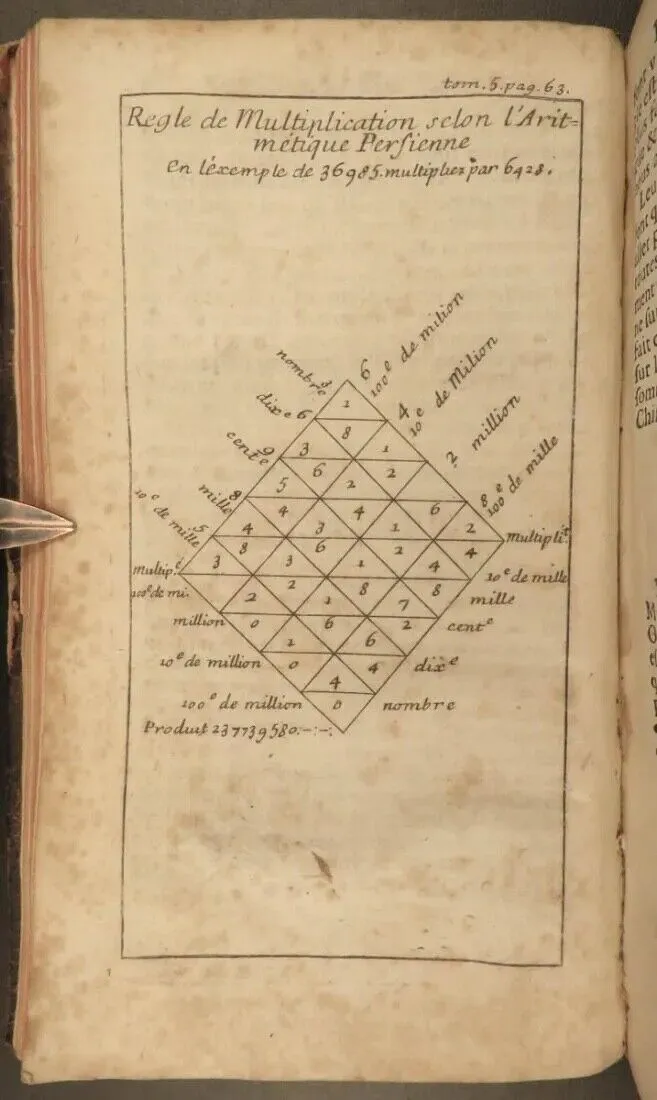 tom. 5. pag. 63.
Regle de Multiplication selon l'Arit=
métique Persienne
En léxemple de 36985. multiplies par 6428.
nombre 3
6 100e de milion
dixe 6
4 10e de Milion
cente 9
2 million
mille 8
8 100e de mille
10e de mille 5
1
8
3 1
6 2
5 2
4 4 6
4 3 1 2
multipli.t
8 6 2 4
3 3 1 4
multip.é
10e de mille
100e de mi.
2 8 8
2 1 7
mille
million
0 6 2
cente
1 6
10e de million
0 4
dixe
4
100e de million
0
nombre
Produit 237739580.-:-: